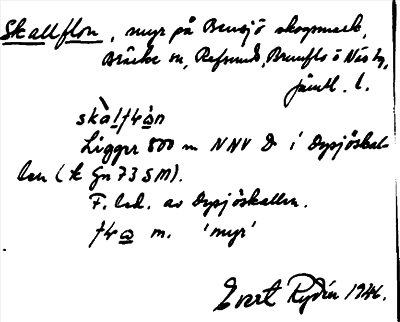 Skallflon, myr på Bensjö skogsmark,
Bräcke sn, Refsunds, Brunflo o Näs tg,
Jämtl. l.
skàlfłɷ̀n
Ligger 800 m NNV D. i Dysjöskal-
len (k Gn 73 SM).
F. led. av Dysjöskallen.
fłɷ m. 'myr'
Evert Rydén 1946.